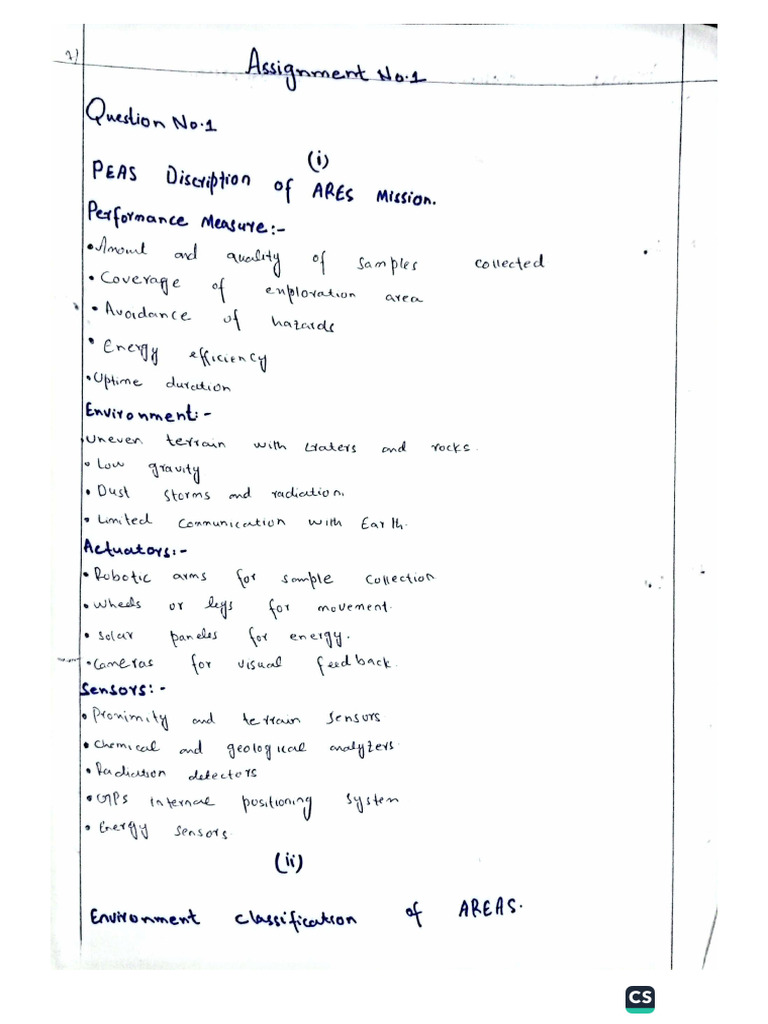 Assignment No.1
Question No.1
(i)
PEAS Discription of AREs Mission.
Performance Measure:-
• Amount and quality of samples collected
• Coverage of exploration area
• Avoidance of hazards
• Energy efficiency
• Uptime duration
Environment:-
Uneven terrain with craters and rocks.
• Low gravity
• Dust storms and radiation.
• Limited communication with Earth.
Actuators:-
• Robotic arms for sample collection
• Wheels or legs for movement.
• Solar paneles for energy.
• Cameras for visual feedback.
Sensors:-
• Proximity and terrain sensors
• Chemical and geological analyzers.
• Radiation detectors
• GPS internal positioning system
• Energy sensors.
(ii)
Environment classification of AREAS.
CS